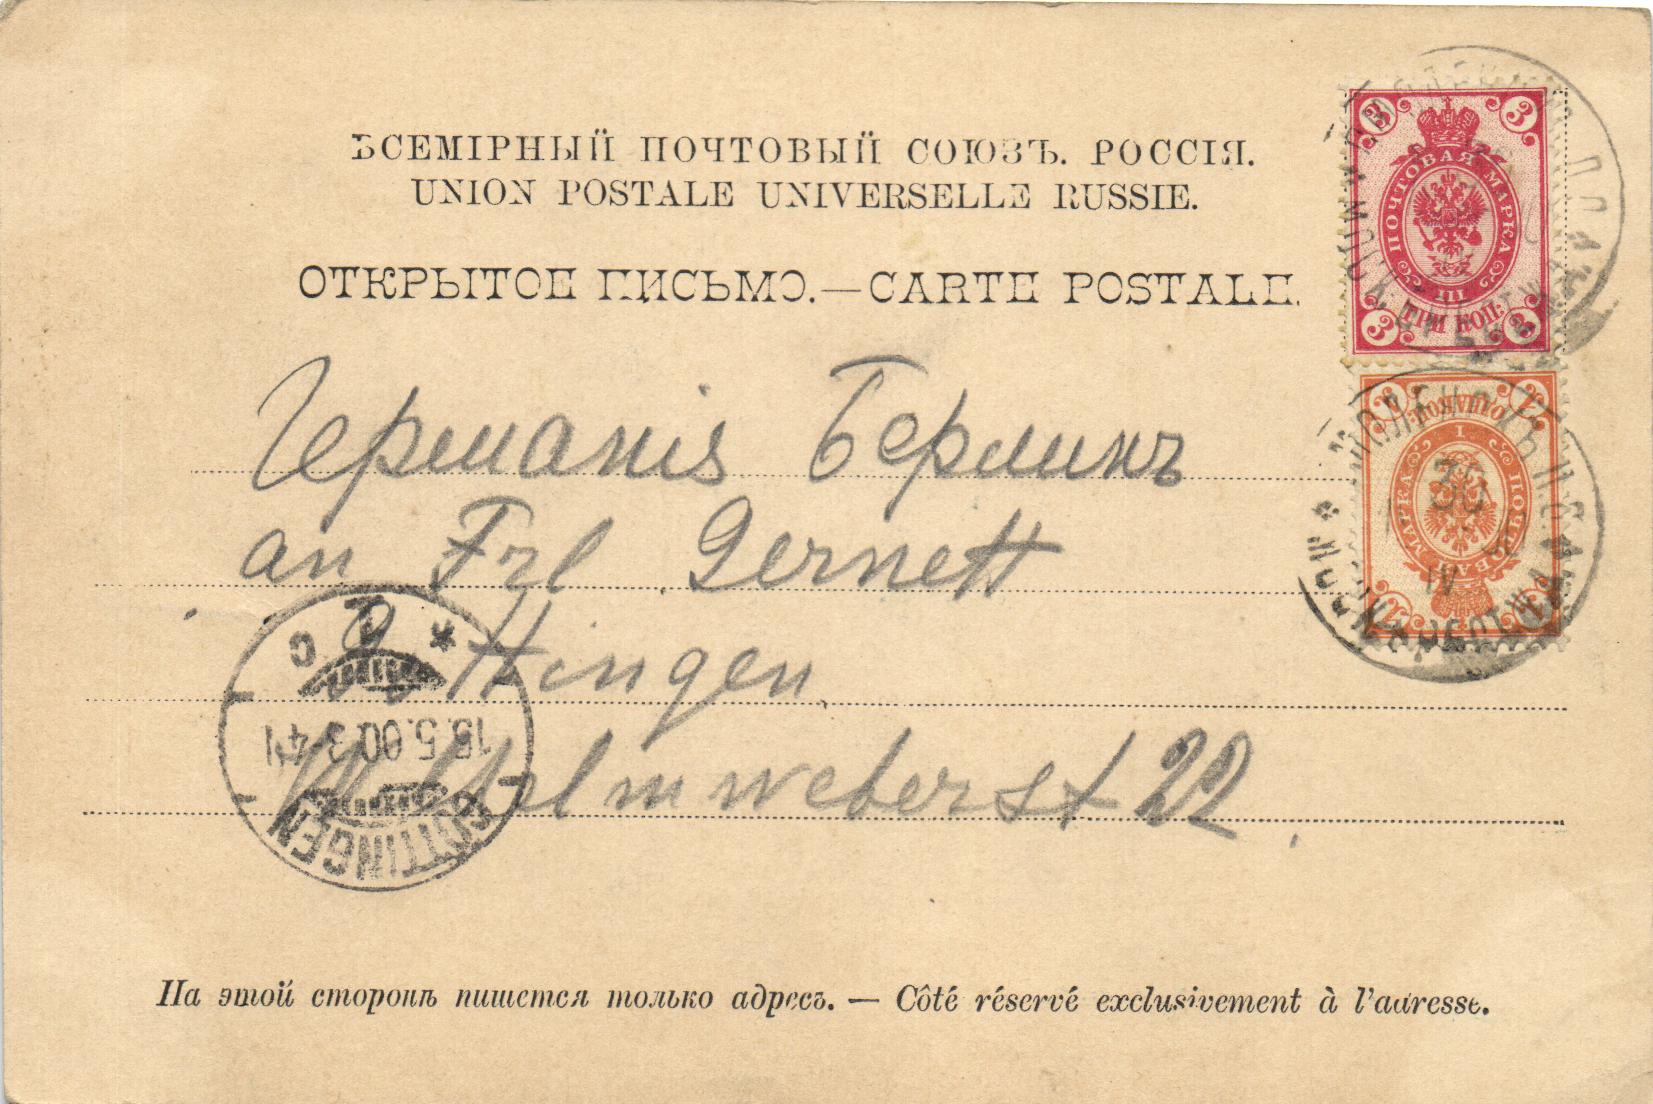 ВСЕМІРНЫЙ ПОЧТОВЫЙ СОЮЗЪ. РОССІЯ.
UNION POSTALE UNIVERSELLE RUSSIE.
ОТКРЫТОЕ ПИСЬМО.—CARTE POSTALE.
3 3
ПОЧТОВАЯ МАРКА
III
ТРИ КОП.
3 3
Германія Берлинъ
an Frl Dernett
Göttingen
Wilhelmweberst 22.
1 1
I
30
IV
* C
15.5.00. 3-4N
GÖTTINGEN
На этой сторонѣ пишется только адресъ. — Côté réservé exclusivement à l'adresse.